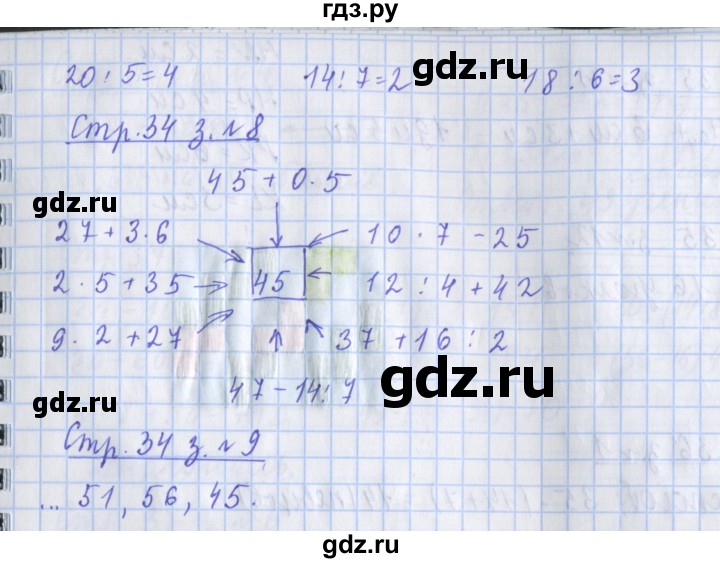 гдз.ру
20 : 5 = 4 14 : 7 = 2 18 : 6 = 3
gdz.ru
Стр. 34 з. №8
45 + 0 · 5
gdz.ru gdz.ru
27 + 3 · 6 10 · 7 - 25
2 · 5 + 35 45 12 : 4 + 42
9 · 2 + 27 37 + 16 : 2
47 - 14 : 7
gdz.ru gdz.ru
Стр. 34 з. №9
... 51, 56, 45.
gdz.ru gdz.ru
gdz.ru